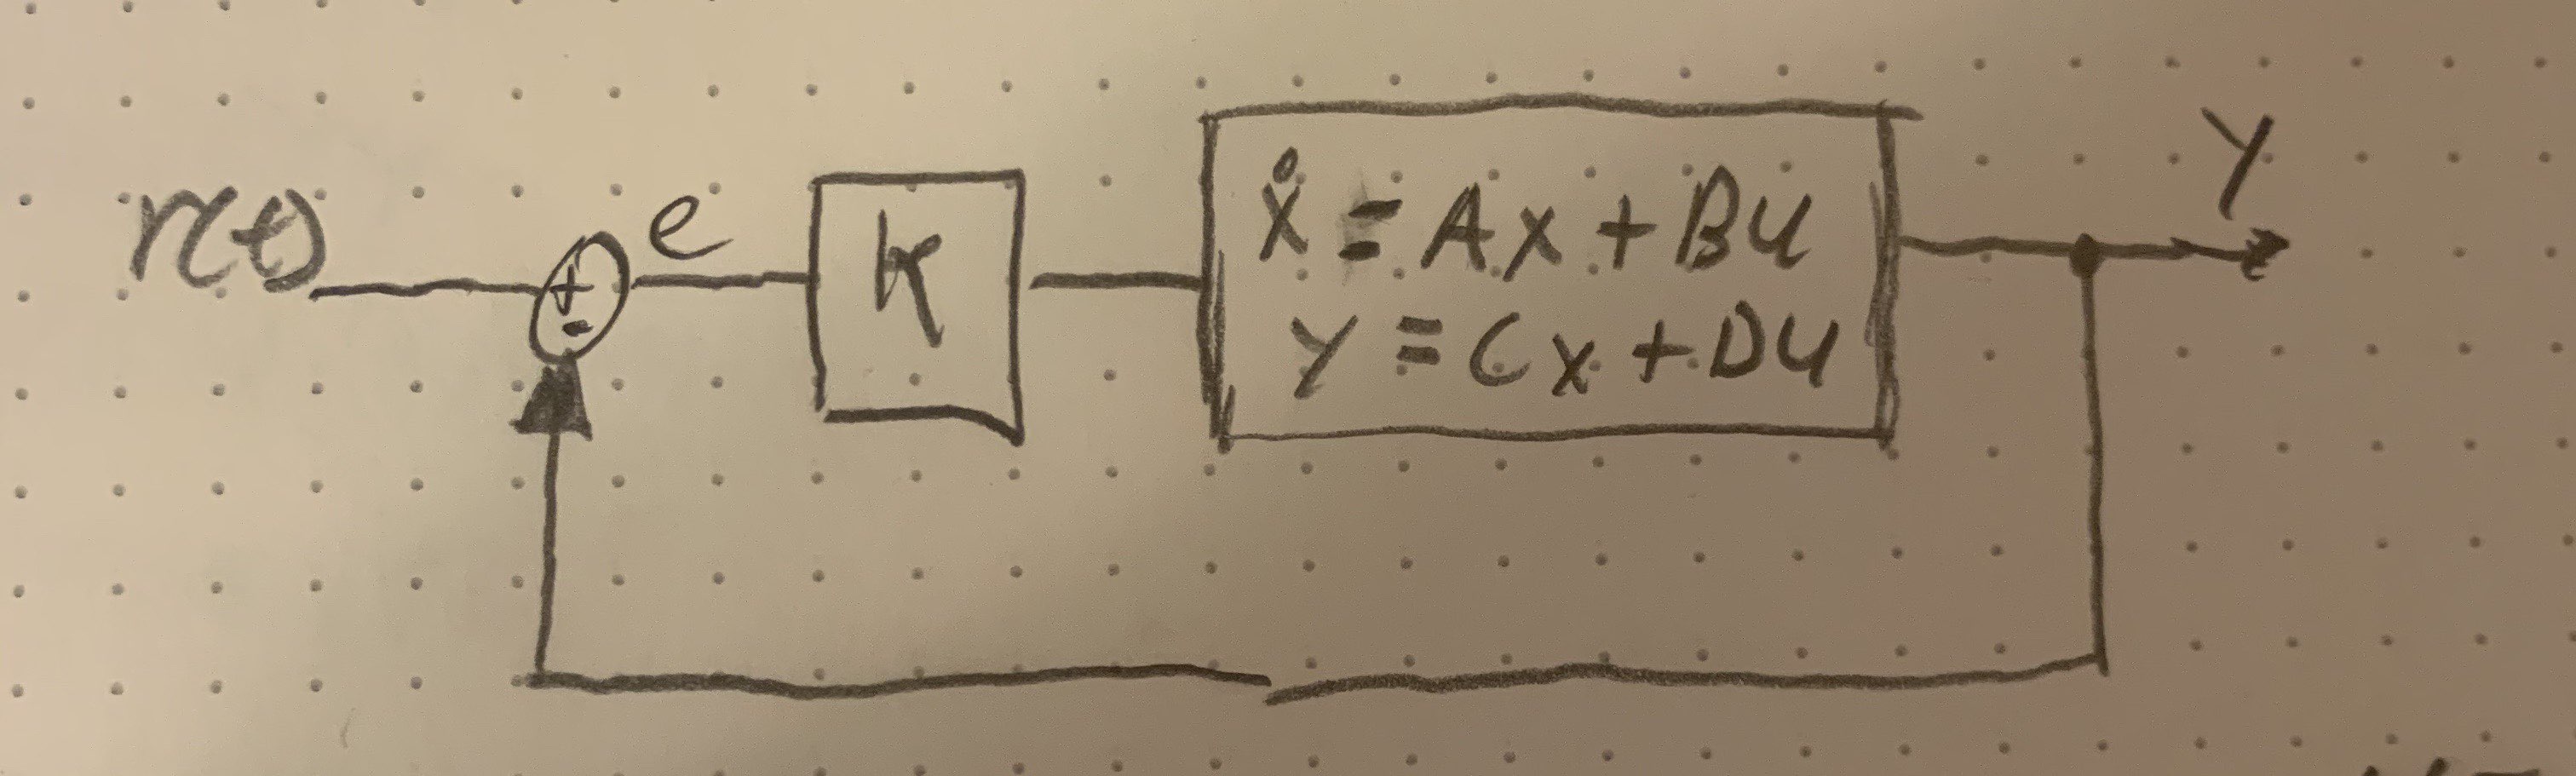 r(t)
+
-
e
K
ẋ = Ax + Bu
y = Cx + Du
y